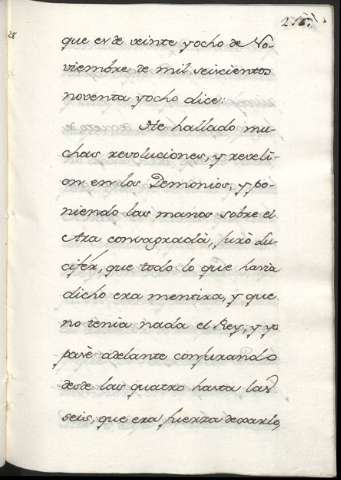 que es de veinte y ocho de No-
viembre de mil seiscientos
noventa y ocho dice:
He hallado mu-
chas revoluciones, y reveli-
on en los Demonios, y po-
niendo las manos sobre el
Ara consagrada, juró Lu-
cifer, que todo lo que havia
dicho era mentira, y que
no tenia nada el Rey, y yo
pasè adelante conjurando
desde las quatro hasta las
seis, que era fuerza dexarlo,